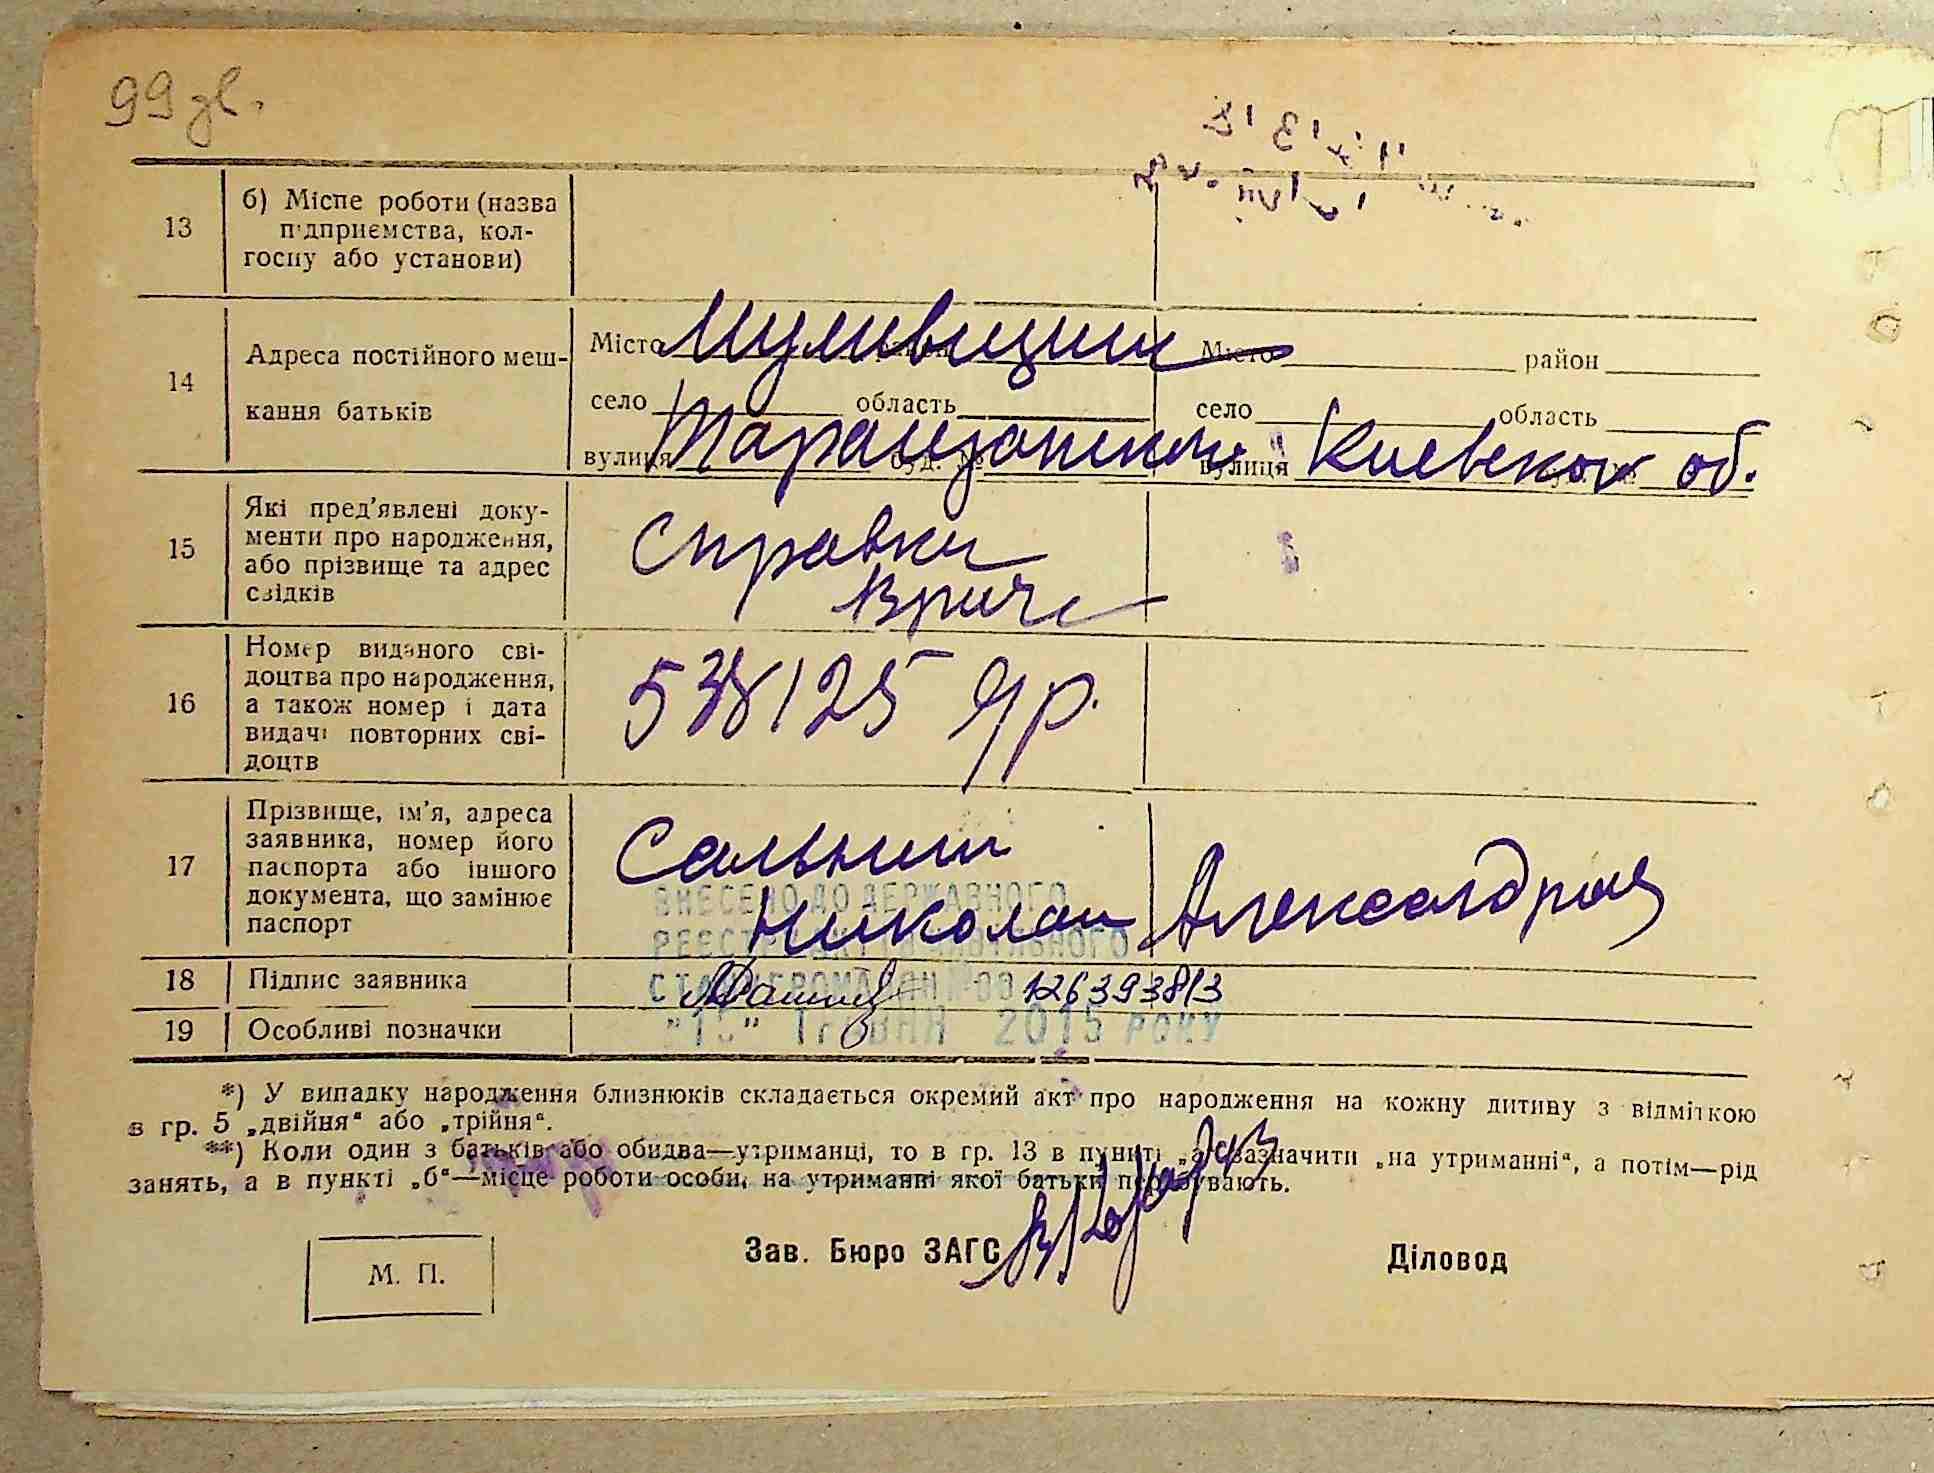 99 зв.
13
б) Місце роботи (назва
підприємства, кол-
госпу або установи)
14
Адреса постійного меш-
кання батьків
Місто
Місто район
село область
село область
вулиця буд. №
вулиця
Таращанского Киевской об.
15
Які пред'явлені доку-
менти про народження,
або прізвище та адрес
свідків
Справка
Врача
16
Номер виданого сві-
доцтва про народження,
а також номер і дата
видачі повторних сві-
доцтв
538125
17
Прізвище, ім'я, адреса
заявника, номер його
паспорта або іншого
документа, що замінює
паспорт
Сальний
Николай Александров
ВНЕСЕНО ДО ДЕРЖАВНОГО
РЕЄСТРУ АКТІВ ЦИВІЛЬНОГО
СТАНУ ГРОМАДЯН №00126393813
"15" ТРАВНЯ 2015 РОКУ
18
Підпис заявника
19
Особливі позначки
*) У випадку народження близнюків складається окремий акт про народження на кожну дитину з відміткою
в гр. 5 „двійня“ або „трійня“.
**) Коли один з батьків або обидва—утриманці, то в гр. 13 в пункті „а“ зазначити „на утриманні“, а потім—рід
занять, а в пункті „б“—місце роботи особи, на утриманні якої батьки перебувають.
М. П.
Зав. Бюро ЗАГС
Діловод